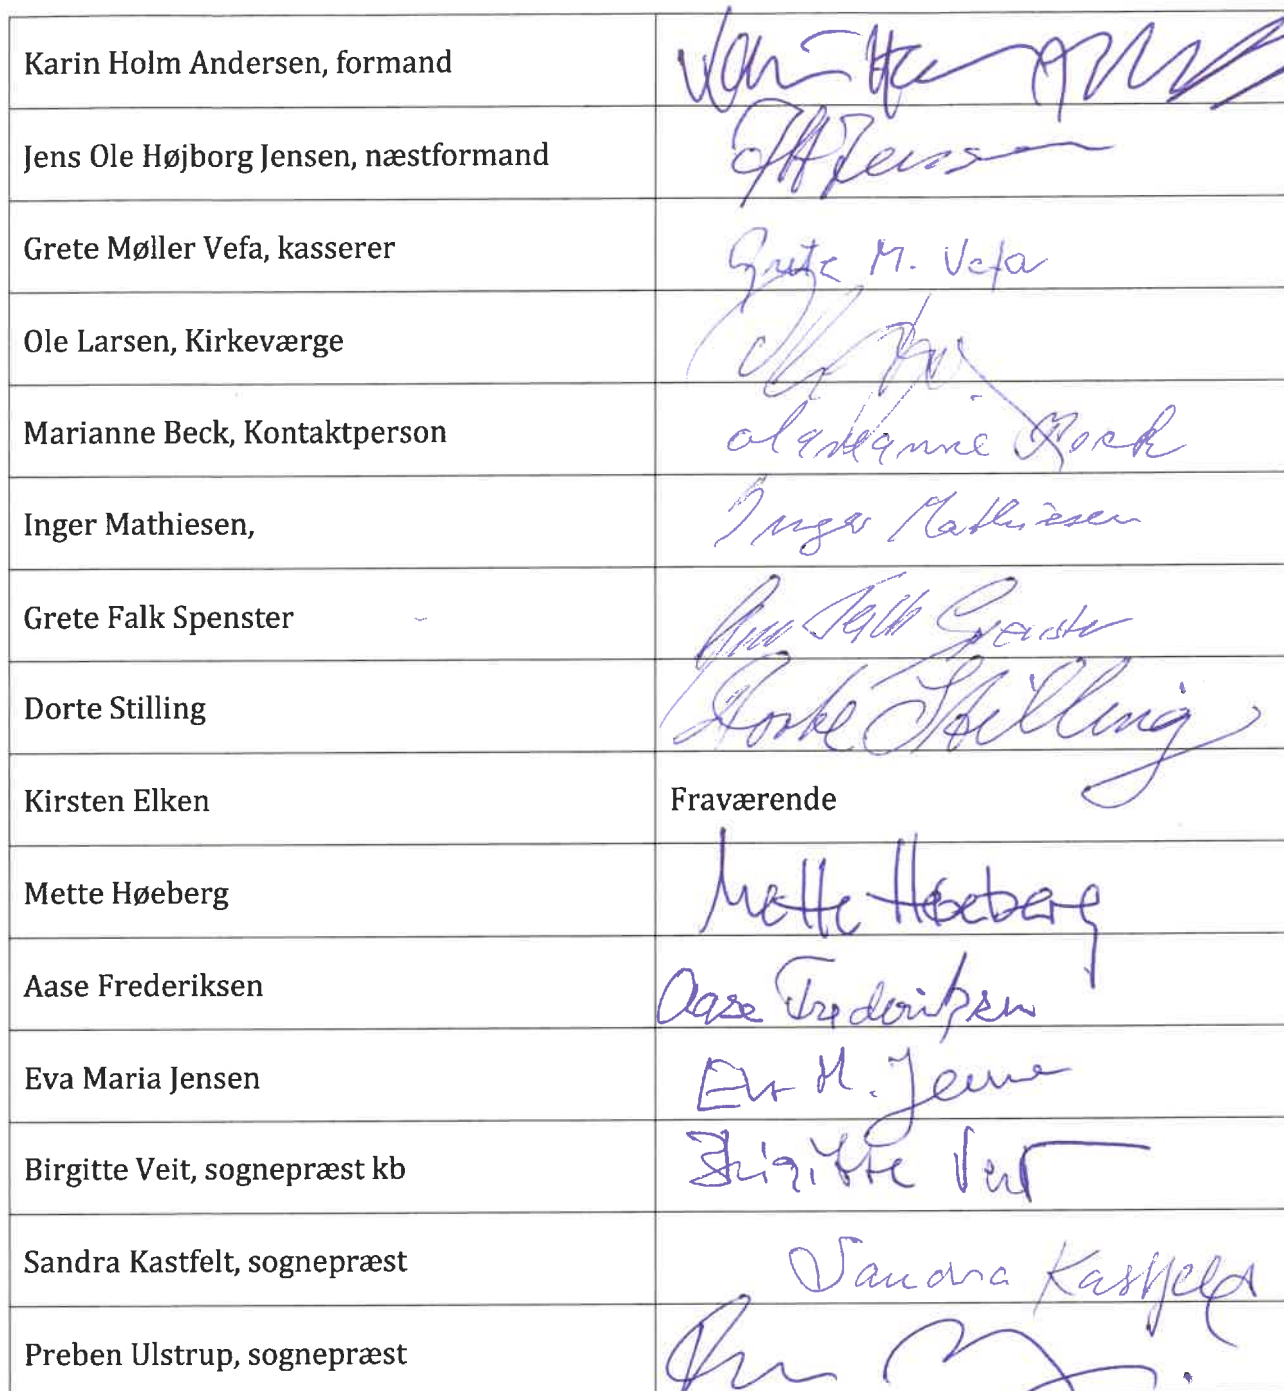 Karin Holm Andersen, formand
Jens Ole Højborg Jensen, næstformand Jensen
Grete Møller Vefa, kasserer Grete M. Vefa
Ole Larsen, Kirkeværge
Marianne Beck, Kontaktperson Marianne Beck
Inger Mathiesen, Inger Mathiesen
Grete Falk Spenster Falk Spenster
Dorte Stilling Dorte Stilling
Kirsten Elken Fraværende
Mette Høeberg Mette Høeberg
Aase Frederiksen Aase Frederiksen
Eva Maria Jensen Eva M. Jensen
Birgitte Veit, sognepræst kb Birgitte Veit
Sandra Kastfelt, sognepræst Sandra Kastfelt
Preben Ulstrup, sognepræst